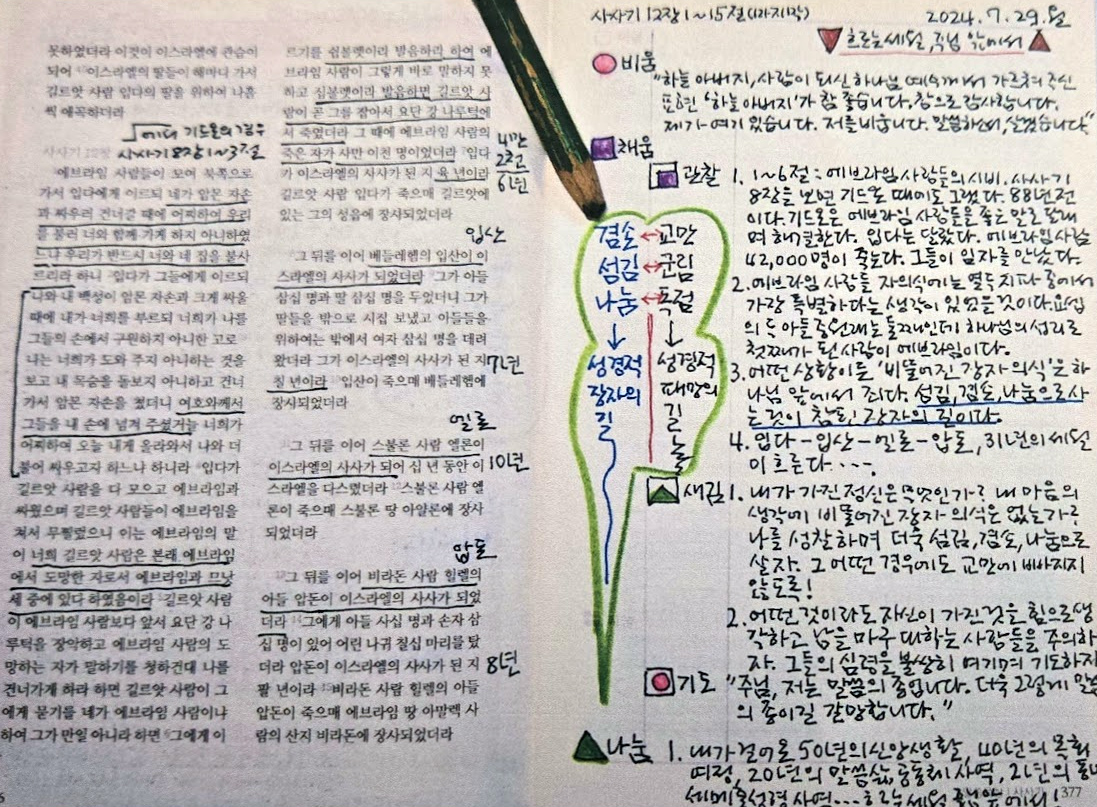 못하였더라 이것이 이스라엘에 관습이
되어 이스라엘의 딸들이 해마다 가서
길르앗 사람 입다의 딸을 위하여 나흘
씩 애곡하더라
이미 기드온의 경우
사사기 8장 1~3절
에브라임 사람들이 모여 북쪽으로
가서 입다에게 이르되 네가 암몬 자손
과 싸우러 건너갈 때에 어찌하여 우리
를 불러 너와 함께 가게 하지 아니하였
느냐 우리가 반드시 너와 네 집을 불사
르리라 하니 입다가 그들에게 이르되
나와 내 백성이 암몬 자손과 크게 싸울
때에 내가 너희를 부르되 너희가 나를
그들의 손에서 구원하지 아니한 고로
나는 너희가 도와 주지 아니하는 것을
보고 내 목숨을 돌보지 아니하고 건너
가서 암몬 자손을 쳤더니 여호와께서
그들을 내 손에 넘겨 주셨거늘 너희가
어찌하여 오늘 내게 올라와서 나와 더
불어 싸우고자 하느냐 하니라 입다가
길르앗 사람을 다 모으고 에브라임과
싸웠으며 길르앗 사람들이 에브라임을
쳐서 무찔렀으니 이는 에브라임의 말
이 너희 길르앗 사람은 본래 에브라임
에서 도망한 자로서 에브라임과 므낫
세 중에 있다 하였음이라 길르앗 사람
이 에브라임 사람보다 앞서 요단 강 나
루턱을 장악하고 에브라임 사람의 도
망하는 자가 말하기를 청하건대 나를
건너가게 하라 하면 길르앗 사람이 그
에게 묻기를 네가 에브라임 사람이냐
하여 그가 만일 아니라 하면 그에게 이
르기를 쉽볼렛이라 발음하라 하여 에
브라임 사람이 그렇게 바로 말하지 못
하고 십볼렛이라 발음하면 길르앗 사
람이 곧 그를 잡아서 요단 강 나루턱에
서 죽였더라 그 때에 에브라임 사람의
죽은 자가 사만 이천 명이었더라 입다
가 이스라엘의 사사가 된 지 육 년이라
길르앗 사람 입다가 죽으매 길르앗에
있는 그의 성읍에 장사되었더라
4만
2천
6년
입산
그 뒤를 이어 베들레헴의 입산이 이
스라엘의 사사가 되었더라 그가 아들
삼십 명과 딸 삼십 명을 두었더니 그가
딸들을 밖으로 시집 보냈고 아들들을
위하여는 밖에서 여자 삼십 명을 데려
왔더라 그가 이스라엘의 사사가 된 지 7년
칠 년이라 입산이 죽으매 베들레헴에
장사되었더라
엘론
그 뒤를 이어 스불론 사람 엘론이
이스라엘의 사사가 되어 십 년 동안 이 10년
스라엘을 다스렸더라 스불론 사람 엘
론이 죽으매 스불론 땅 아얄론에 장사
되었더라
압돈
그 뒤를 이어 비라돈 사람 힐렐의
아들 압돈이 이스라엘의 사사가 되었
더라 그에게 아들 사십 명과 손자 삼
십 명이 있어 어린 나귀 칠십 마리를 탔
더라 압돈이 이스라엘의 사사가 된 지 8년
팔 년이라 비라돈 사람 힐렐의 아들
압돈이 죽으매 에브라임 땅 아말렉 사
람의 산지 비라돈에 장사되었더라
사사기 12장 1~15절(마지막)
2024.7.29.월
흐르는 세월 주님 앞에서
비움
"하늘 아버지, 사람이 되신 하나님 예수께서 가르쳐 주신
표현 '하늘 아버지'가 참 좋습니다. 참으로 감사합니다.
제가 여기 있습니다. 저를 비웁니다. 말씀하소서, 듣겠습니다."
채움
관찰
1. 1~6절 : 에브라임 사람들의 시비. 사사기
8장을 보면 기드온 때에도 그랬다. 88년 전
이다. 기드온은 에브라임 사람들을 좋은 말로 달래
며 해결한다. 입다는 달랐다. 에브라임 사람
42,000명이 죽는다. 그들이 임자를 만났다.
2. 에브라임 사람들 자의식에는 열두 지파 중에서
가장 특별하다는 생각이 있었을 것이다. 요셉
의 두 아들 중 원래는 둘째인데 하나님의 섭리로
첫째가 된 사람이 에브라임이다.
3. 어떤 상황이든 '비뚤어진 장자 의식'은 하
나님 앞에서 죄다. 섬김, 겸손, 나눔으로 사
는 것이 참된 장자의 길이다.
4. 입다-입산-엘론-압돈, 31년의 세월
이 흐른다....
겸손 ↔ 교만
섬김 ↔ 군림
나눔 ↔ 독점
↓ ↓
성경적
장자의
길
성경적
패망의
길
새김
1. 내가 가진 정신은 무엇인가? 내 마음의
생각에 비뚤어진 장자 의식은 없는가?
나를 성찰하며 더욱 섬김, 겸손, 나눔으로
살자. 그 어떤 경우에도 교만에 빠지지
않도록!
2. 어떤 것이라도 자신이 가진 것을 힘으로 생
각하고 남을 마구 대하는 사람들을 주의하
자. 그들의 심령을 불쌍히 여기며 기도하자
기도
"주님, 저는 말씀의 종입니다. 더욱 그렇게
의 종이길 갈망합니다."
나눔
1. 내가 걸어온 50년의 신앙생활, 40년의 목회
여정, 20년의 말씀삶 공동체 사역, 21년의
흐르는 세월 주님 앞에서!
377